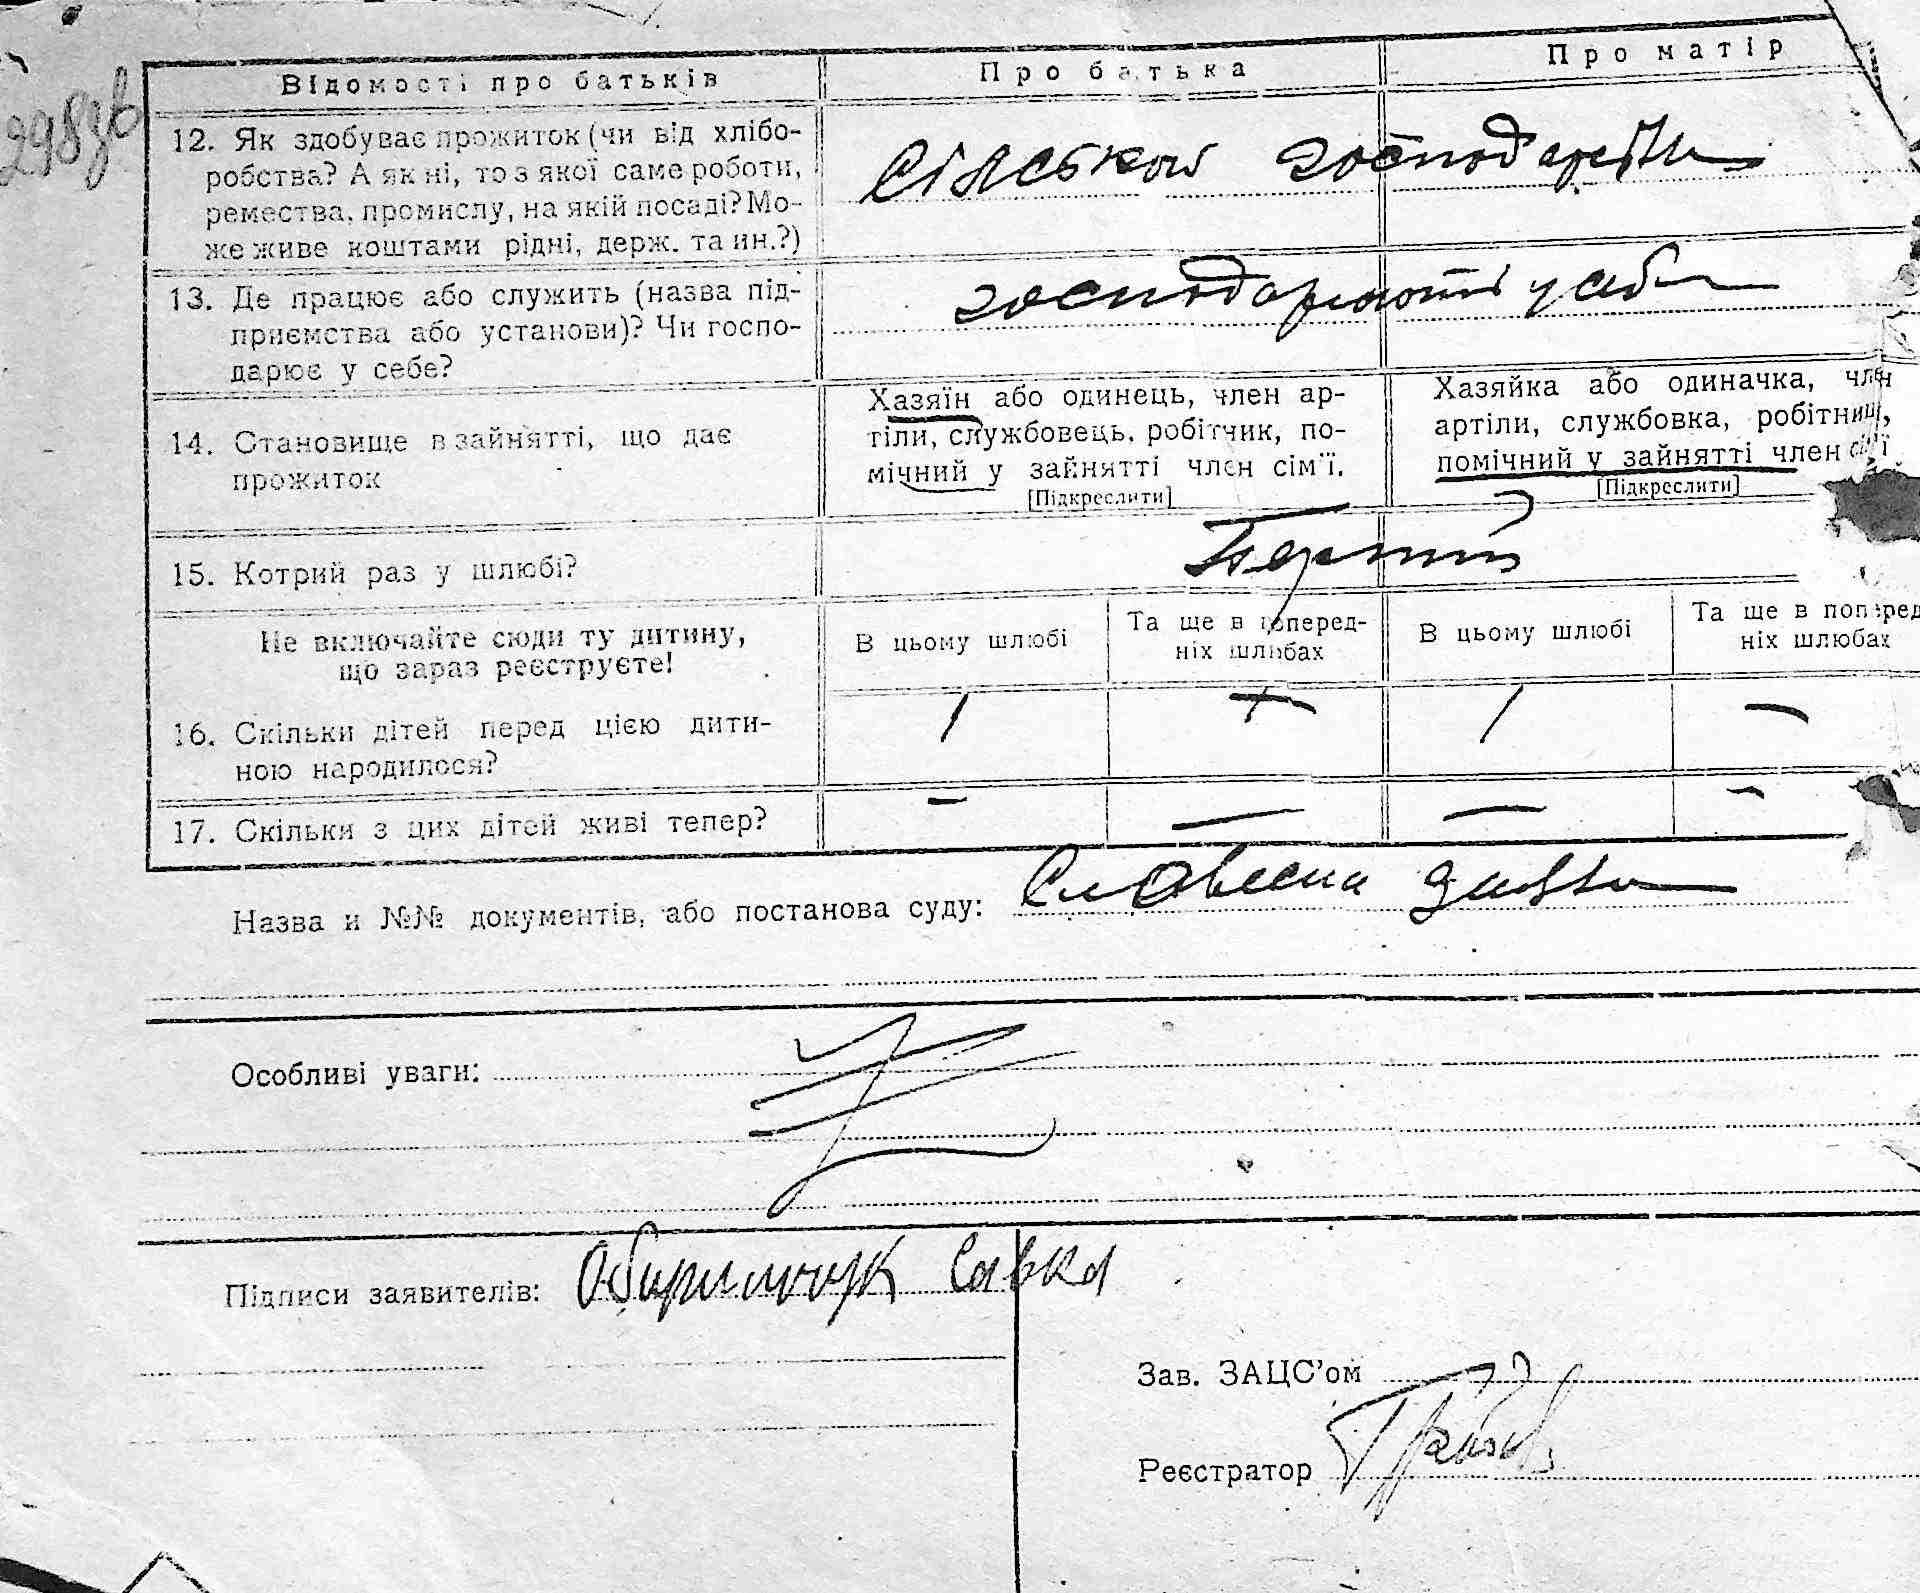 298зв
Відомості про батьків
Про батька
Про матір
12. Як здобуває прожиток (чи від хлібо-
робства? А як ні, то з якої саме роботи,
ремества, промислу, на якій посаді? Мо-
же живе коштами рідні, держ. та ин.?)
сільське господарство
13. Де працює або служить (назва під-
приємства або установи)? Чи госпо-
дарює у себе?
господарюють у себе
14. Становище в зайнятті, що дає
прожиток
Хазяїн або одинець, член ар-
тіли, службовець, робітчик, по-
мічний у зайнятті член сім'ї.
[Підкреслити]
Хазяйка або одиначка, член
артіли, службовка, робітниця,
помічний у зайнятті член сім'ї
[Підкреслити]
15. Котрий раз у шлюбі?
Перший
Не включайте сюди ту дитину,
що зараз реєструєте!
В цьому шлюбі
Та ще в поперед-
ніх шлюбах
В цьому шлюбі
Та ще в поперед
ніх шлюбах
16. Скільки дітей перед цією дити-
ною народилося?
1 — 1 —
17. Скільки з цих дітей живі тепер?
— — — —
Назва и №№ документів, або постанова суду: Словесна заява
Особливі уваги:
Підписи заявителів: Савка
Зав. ЗАЦС'ом
Реєстратор